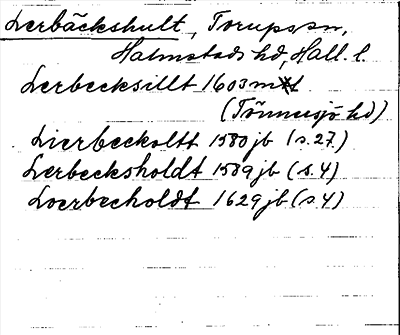 Lerbäckshult, Torups sn,
Halmstads hd, Hall. l.
Lerbecksillt 1603 mtl
(Tönnersjö hd)
Lierbeckoltt 1580 jb (s. 27)
Lerbecksholdt 1589 jb (s. 4)
Loerbecholdt 1629 jb (s. 4)